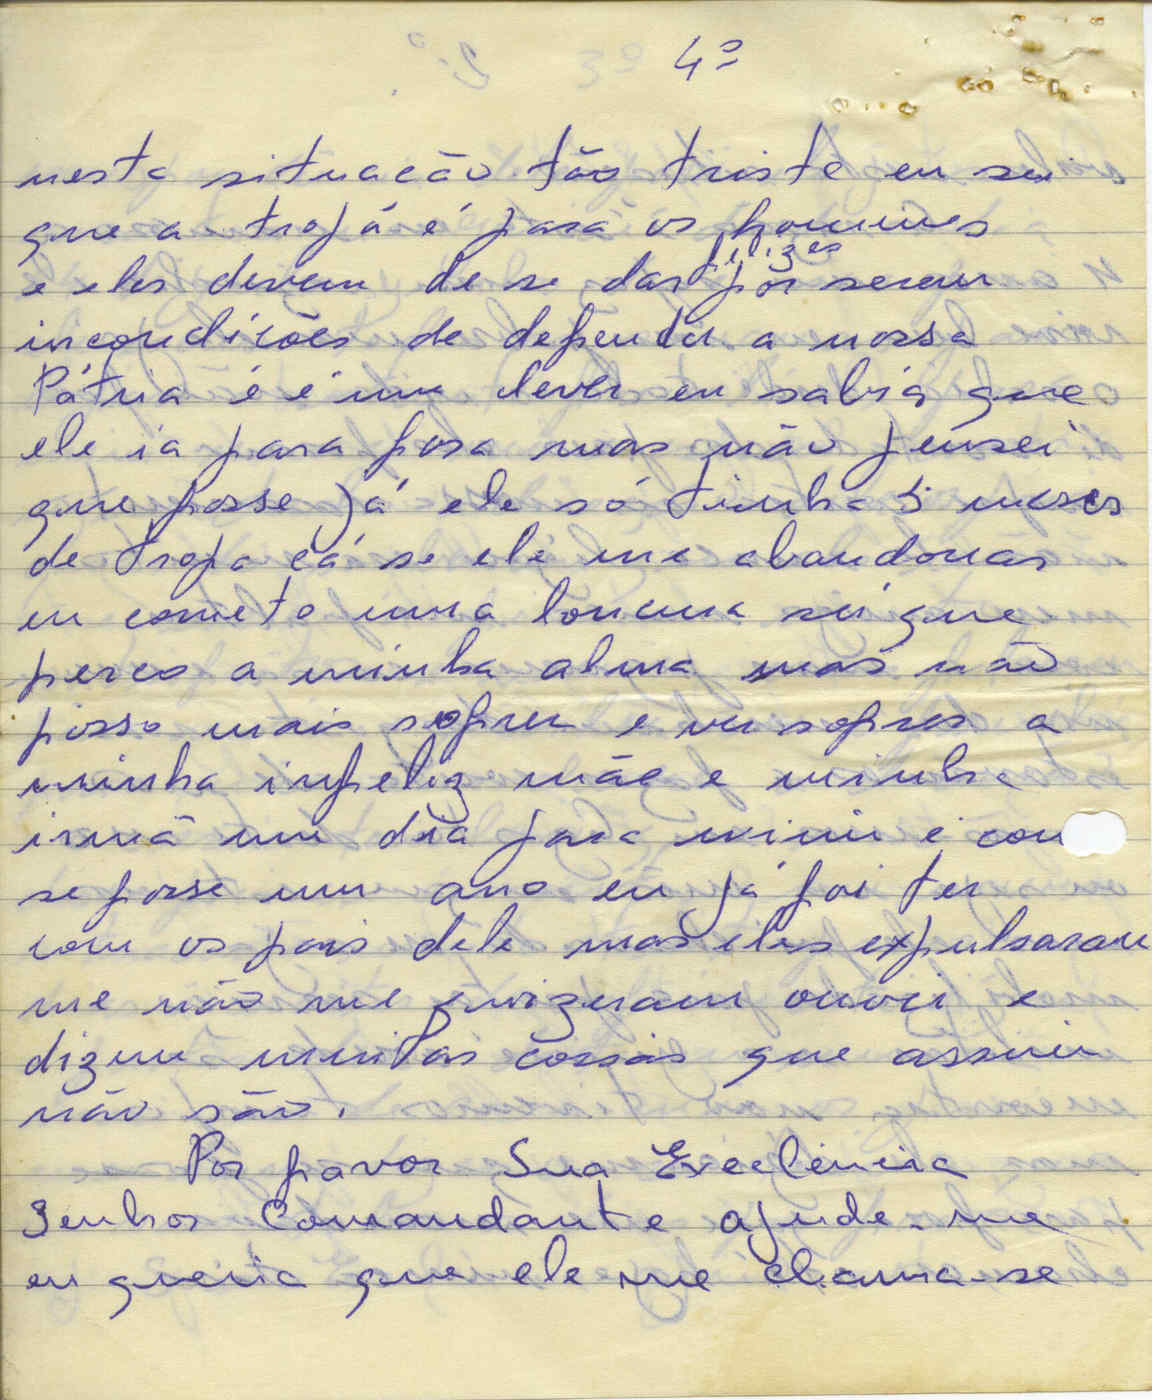 4º
nesta situacão tão triste eu sei
que a tropá é para os homines
e eles devem de se dar felizes por serem
incondicões de defender a nossa
Pátria é é um dever eu sabia que
ele ia para fora mas não pensei
que fosse já ele só tinha 5 meses
de tropa cá se ele me abandonar
eu cometo uma loucura sei que
perco a minha alma mas não
posso mais sofrer e ver sofrer a
minha infeliz mãe e minha
irmã um dia para mimir é com
se fosse um ano eu já foi ter
com os pais dele mas eles expulsaram
me não me quizeram ouvir e
dizem muitas cossas que assim
não são.
Por favor Sua Execlência
Senhor Comandante ajude-me
eu queria que ele me chama-se